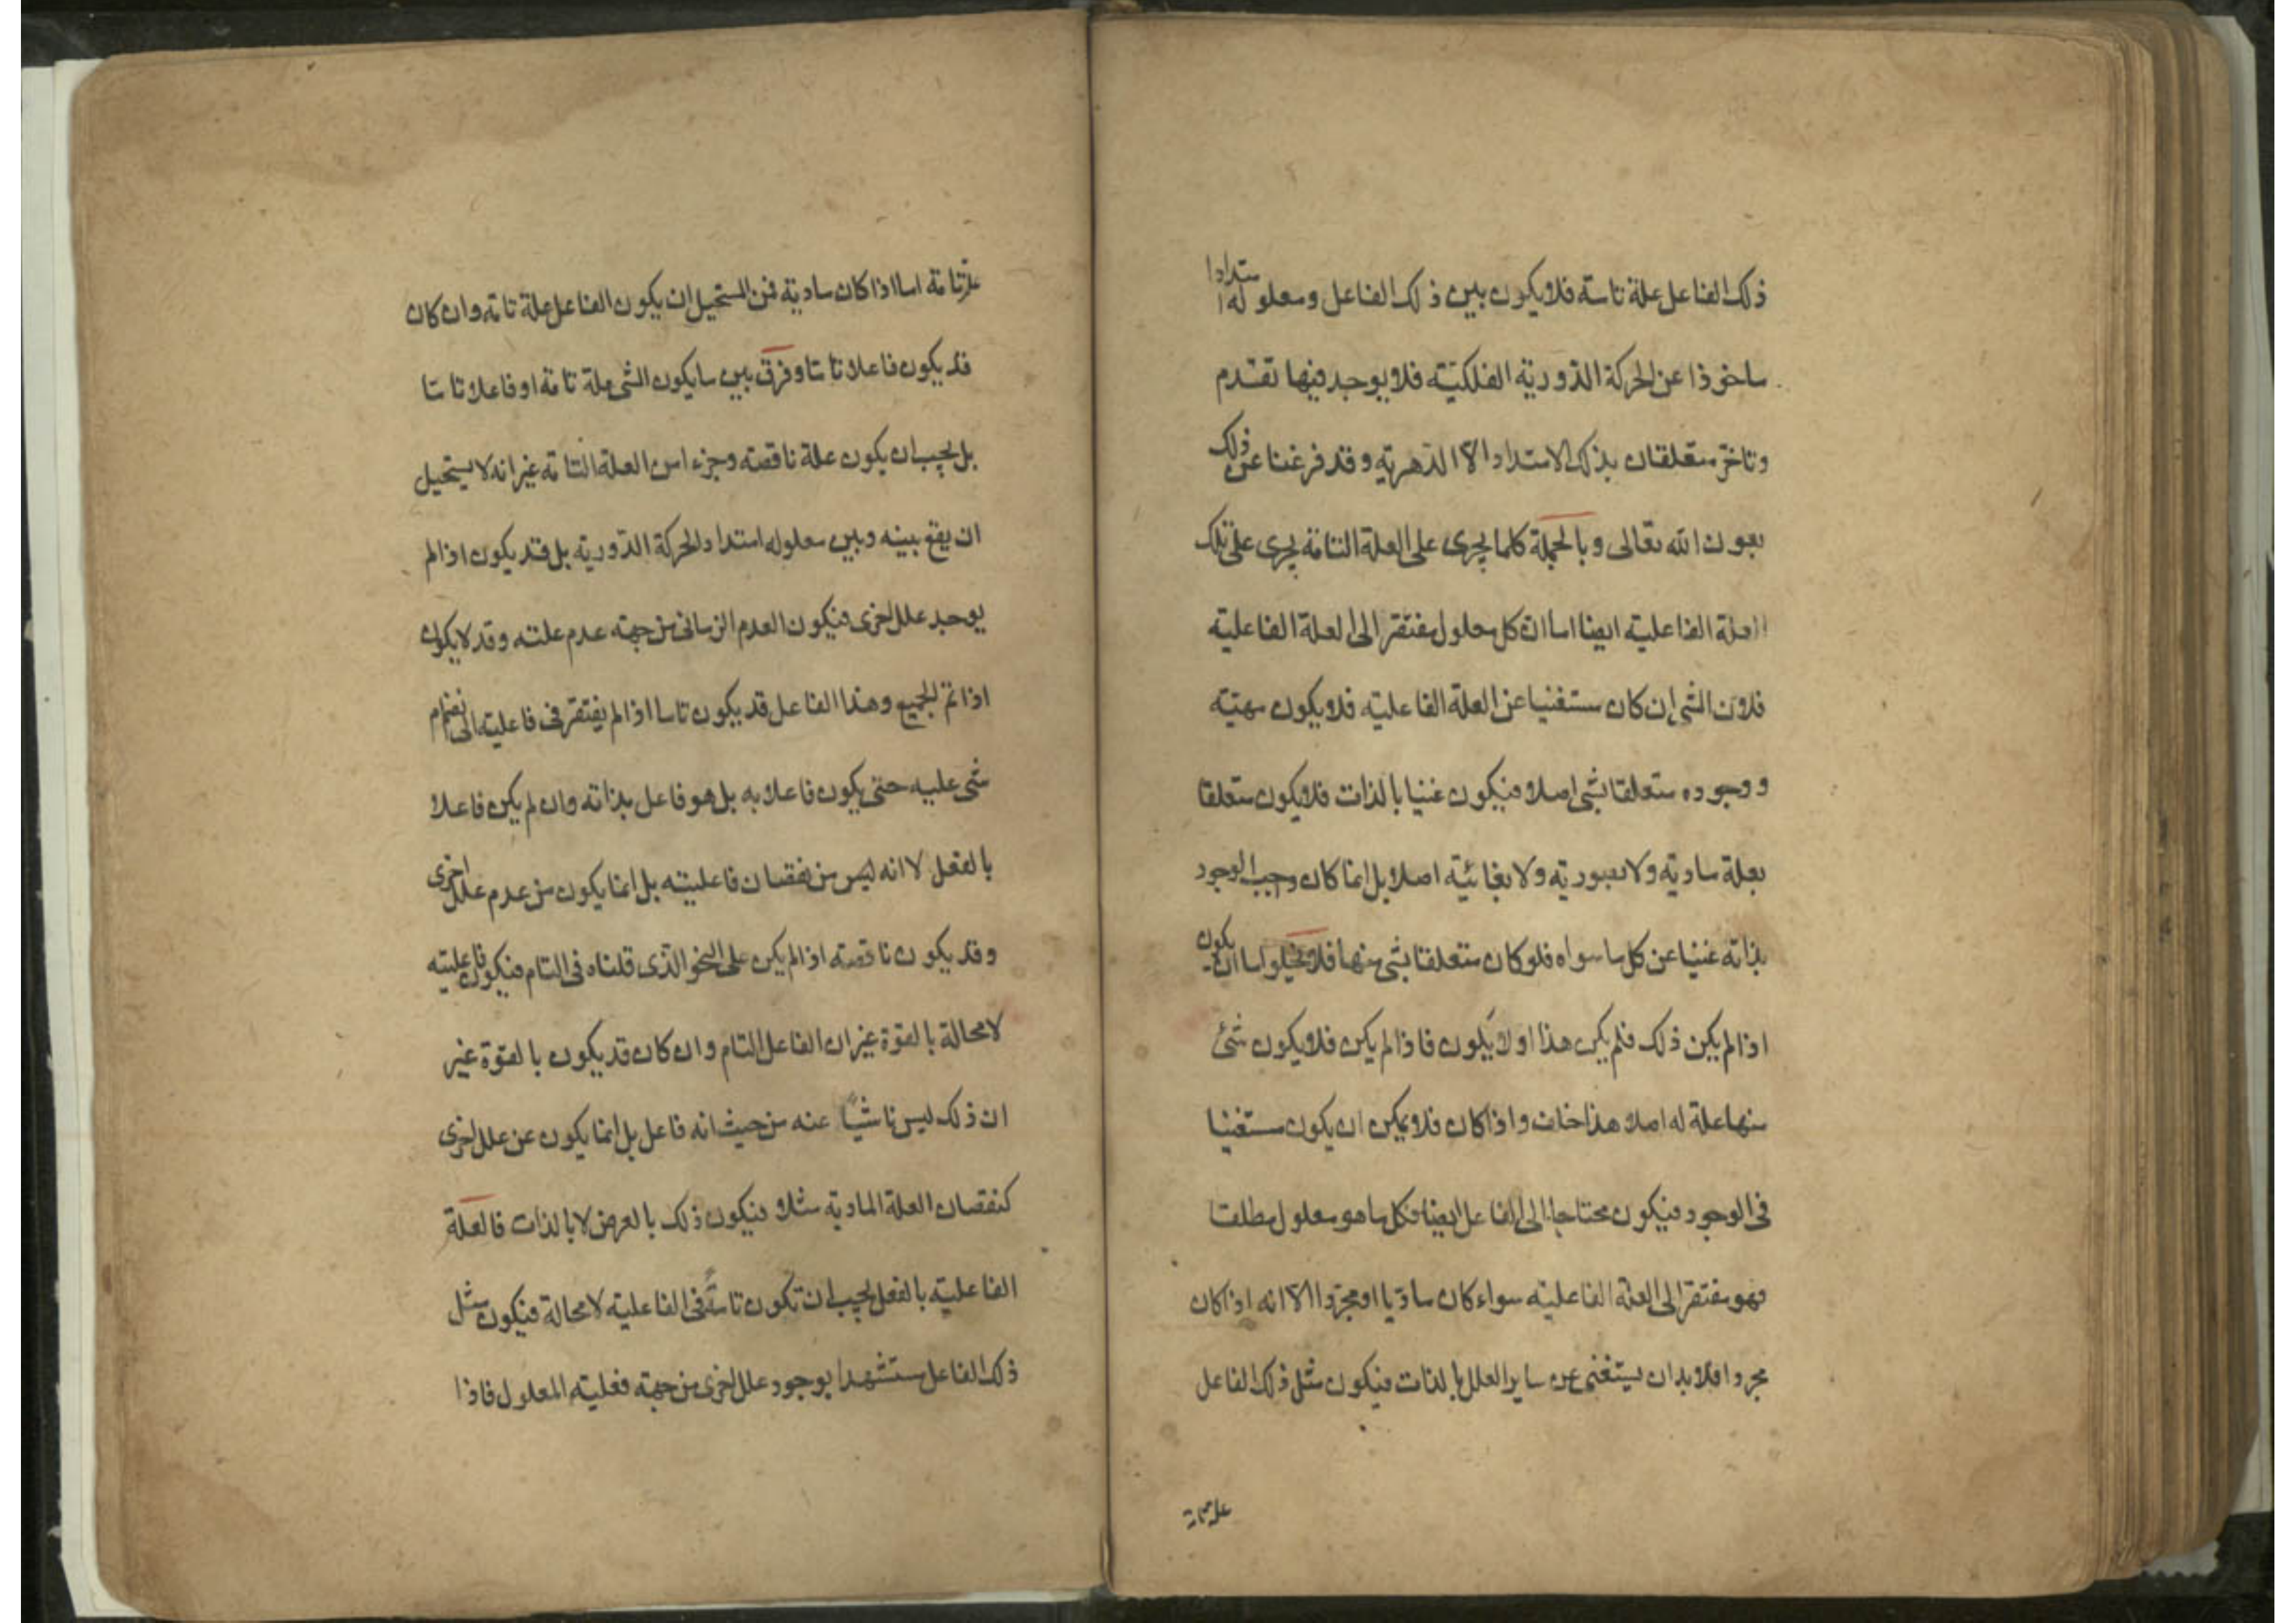 ذلك الفاعل علة تامة فلا يكون بين ذلك الفاعل ومعلوله امتدادا
ماخوذا عن الحركة الدورية الفلكية فلا يوجد فيها تقدم
وتاخر متعلقان بذلك الامتداد الا الدهرية وقد فرغنا عن ذلك
بعون الله تعالى وبالجملة كلما يجرى على العلة التامة يجرى على تلك
العلة الفاعلية ايضا اما ان كل معلول مفتقر الى العلة الفاعلية
فلان الشى ان كان مستغنيا عن العلة الفاعلية فلا يكون مهيته
ووجوده متعلقا بشى اصلا فيكون غنيا بالذات فلا يكون متعلقا
بعلة مادية ولا بصورية ولا بغائية اصلا بل انما كان واجب الوجود
بذاته غنيا عن كل ما سواه فلو كان متعلقا بشى منها فلا يخلوا ما ان يكون
اذا لم يكن ذلك فلم يكن هذا او لا يكون فاذا لم يكن فلا يكون شئ
منها علة له اصلا هذا خلف واذا كان فلا يمكن ان يكون مستغنيا
فى الوجود فيكون محتاجا الى الفاعل ايضا فكل ما هو معلول مطلقا
فهو مفتقر الى العلة الفاعلية سواء كان ماديا او مجردا الا انه اذا كان
مجردا فلا بد ان يستغنى عن ساير العلل بالذات فيكون مثل ذلك الفاعل
علة تامة
علة تامة اما اذا كان مادية فمن المستحيل ان يكون الفاعل علة تامة وان كان
قد يكون فاعلا تاما وفرق بين ما يكون الشى علة تامة او فاعلا تاما
بل يجب ان يكون علة ناقصة وجزء من العلة التامة غير انه لا يستحيل
ان يقع بينه وبين معلوله امتداد الحركة الدورية بل قد يكون اذا لم
يوجد علل اخرى فيكون العدم الزمانى من جهة عدم علته وقد لا يكون
اذا تم الجميع وهذا الفاعل قد يكون تاما اذا لم يفتقر فى فاعليته الى انضمام
شى عليه حتى يكون فاعلا به بل هو فاعل بذاته وان لم يكن فاعلا
بالفعل لا انه ليس من نقصان فاعليته بل انما يكون من عدم علل اخرى
وقد يكون ناقصة اذا لم يكن على النحو الذى قلناه فى التام فيكون فاعليته
لا محالة بالقوة غير ان الفاعل التام وان كان قد يكون بالقوة غير
ان ذلك ليس ناشيا عنه من حيث انه فاعل بل انما يكون عن علل اخرى
كنقصان العلة المادية مثلا فيكون ذلك بالعرض لا بالذات فالعلة
الفاعلية بالفعل يجب ان تكون تامة فى الفاعلية لا محالة فيكون مثل
ذلك الفاعل مستشهدا بوجود علل اخرى من جهة فعلية المعلول فاذا